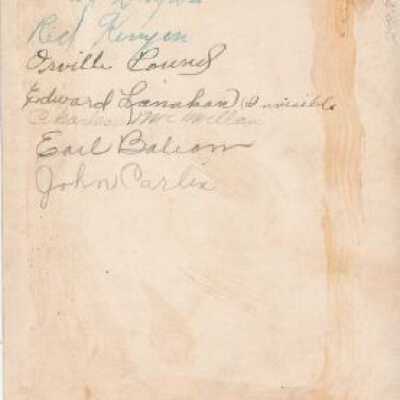 Red Kenyon
Orville Pound
Edward Lanahan (Invisible
Charles McMillan
Earl Balcom
John Carlin